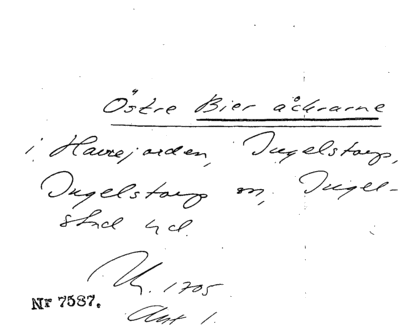 Östre Bier åkrarne
i Havrejorden, Ingelstorp,
Ingelstorp sn, Ingel-
stad hd.
1705
Akt 1.
Nr 7587.